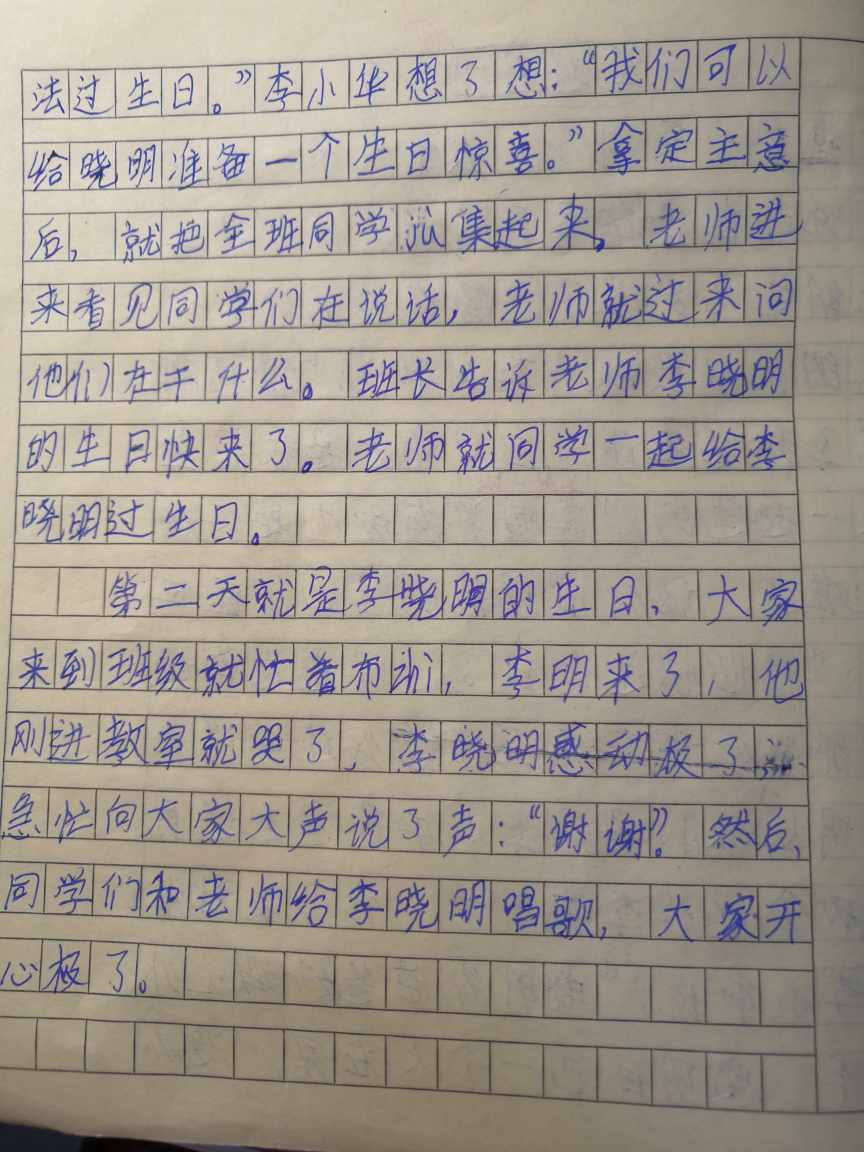 法过生日。”李小华想了想：“我们可以
给晓明准备一个生日惊喜。”拿定主意
后，就把全班同学集起来。老师进
来看见同学们在说话，老师就过来问
他们在干什么。班长告诉老师李晓明
的生日快来了。老师就同学一起给李
晓明过生日。
第二天就是李晓明的生日、大家
来到班级就忙着布，李明来了，他
刚进教室就哭了、李晓明感动极了
急忙向大家大声说了声：“谢谢”？然后、
同学们和老师给李晓明唱歌，大家开
心极了。